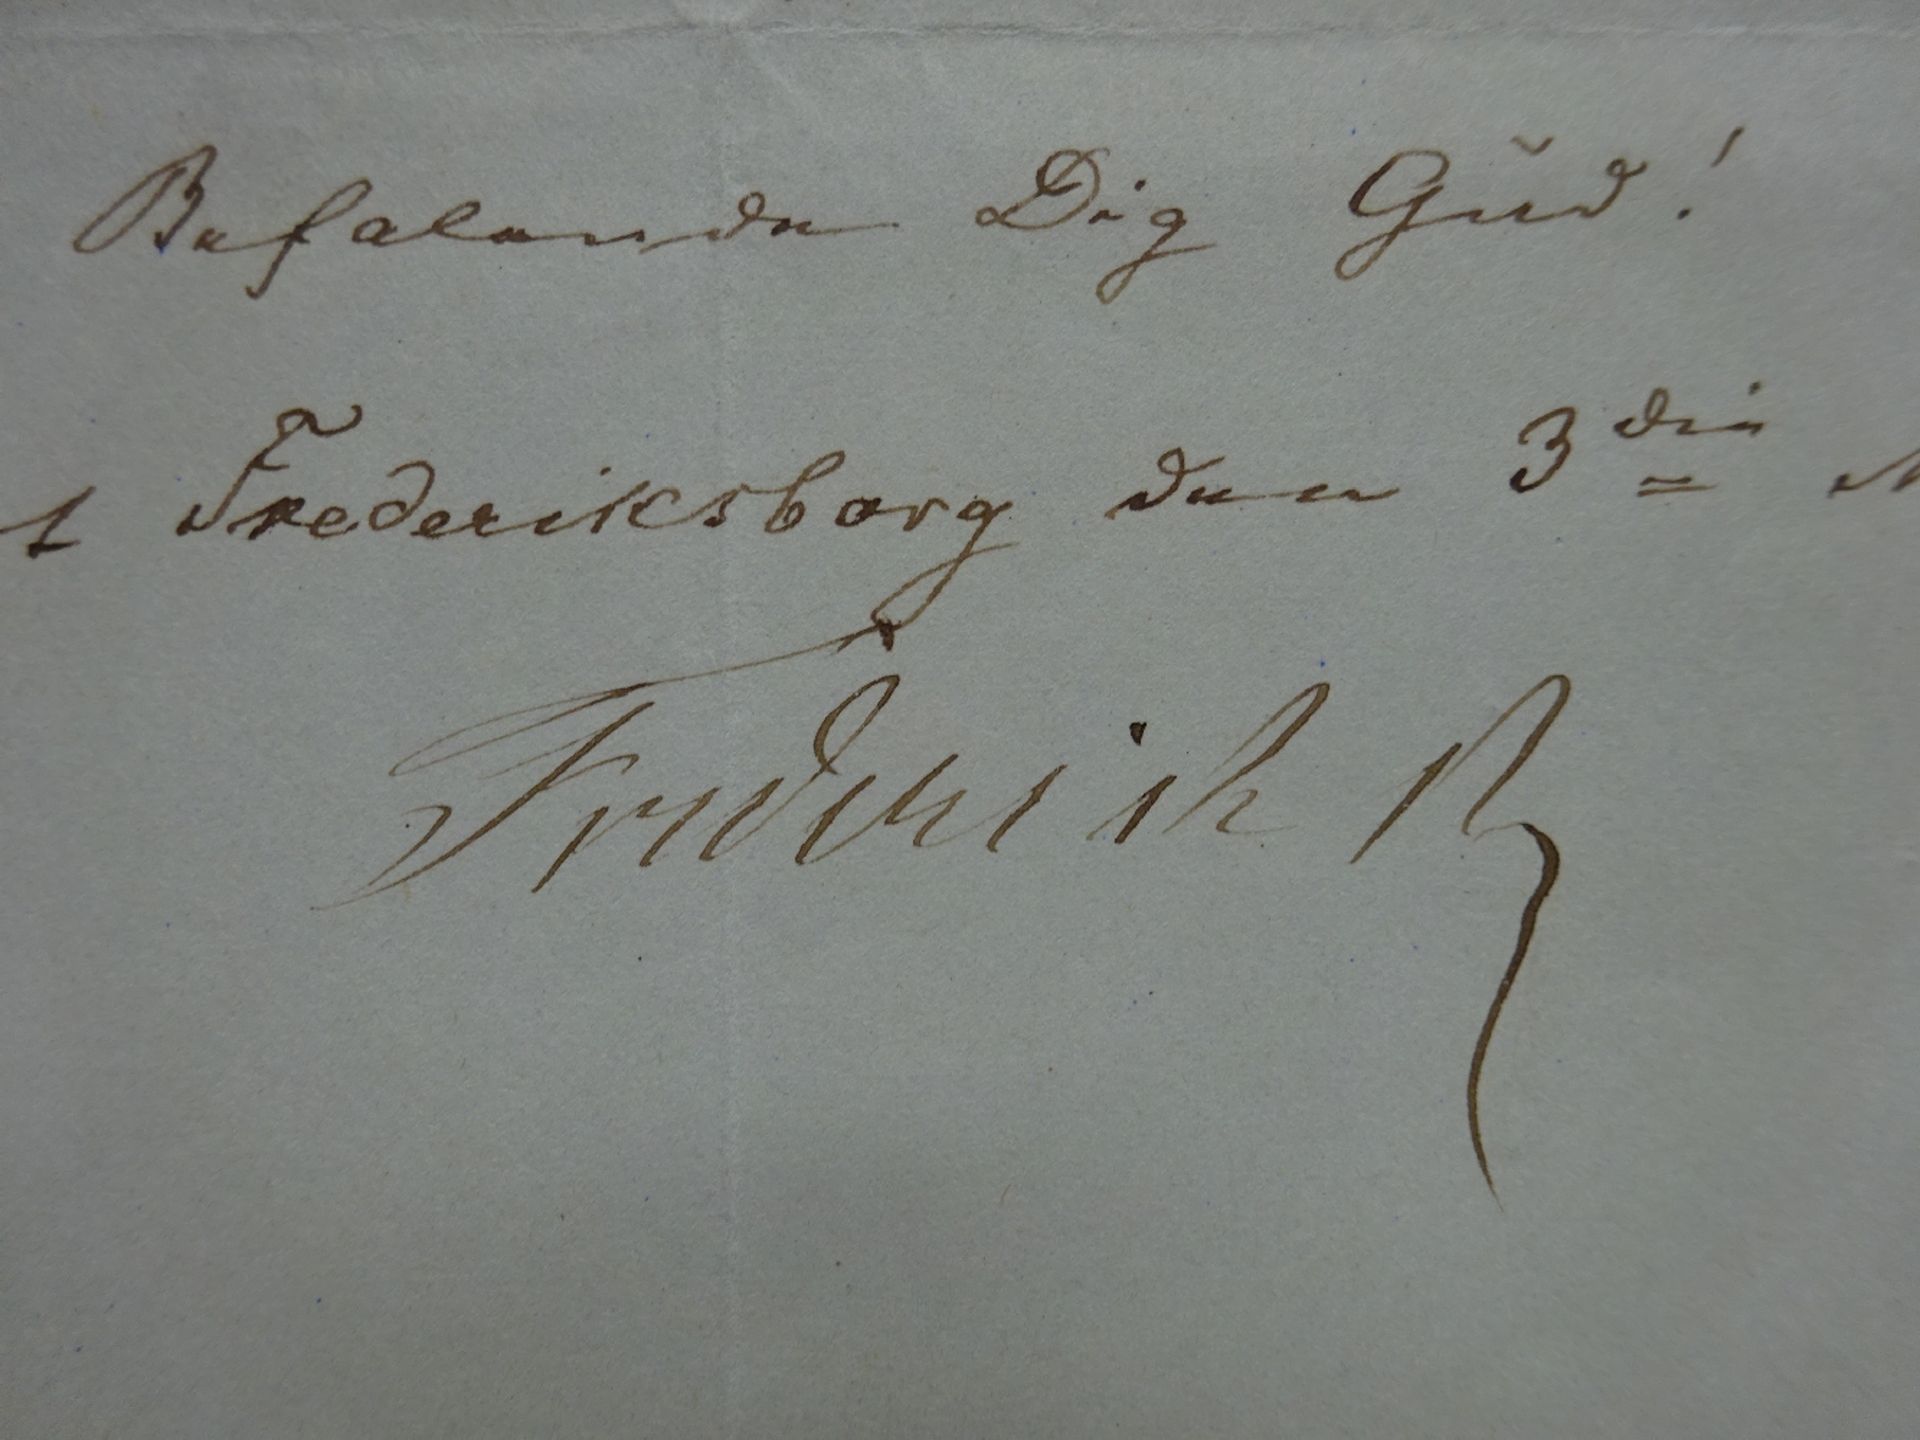 Befalende Dig Gud!
Frederiksborg den 3die
Frederik R